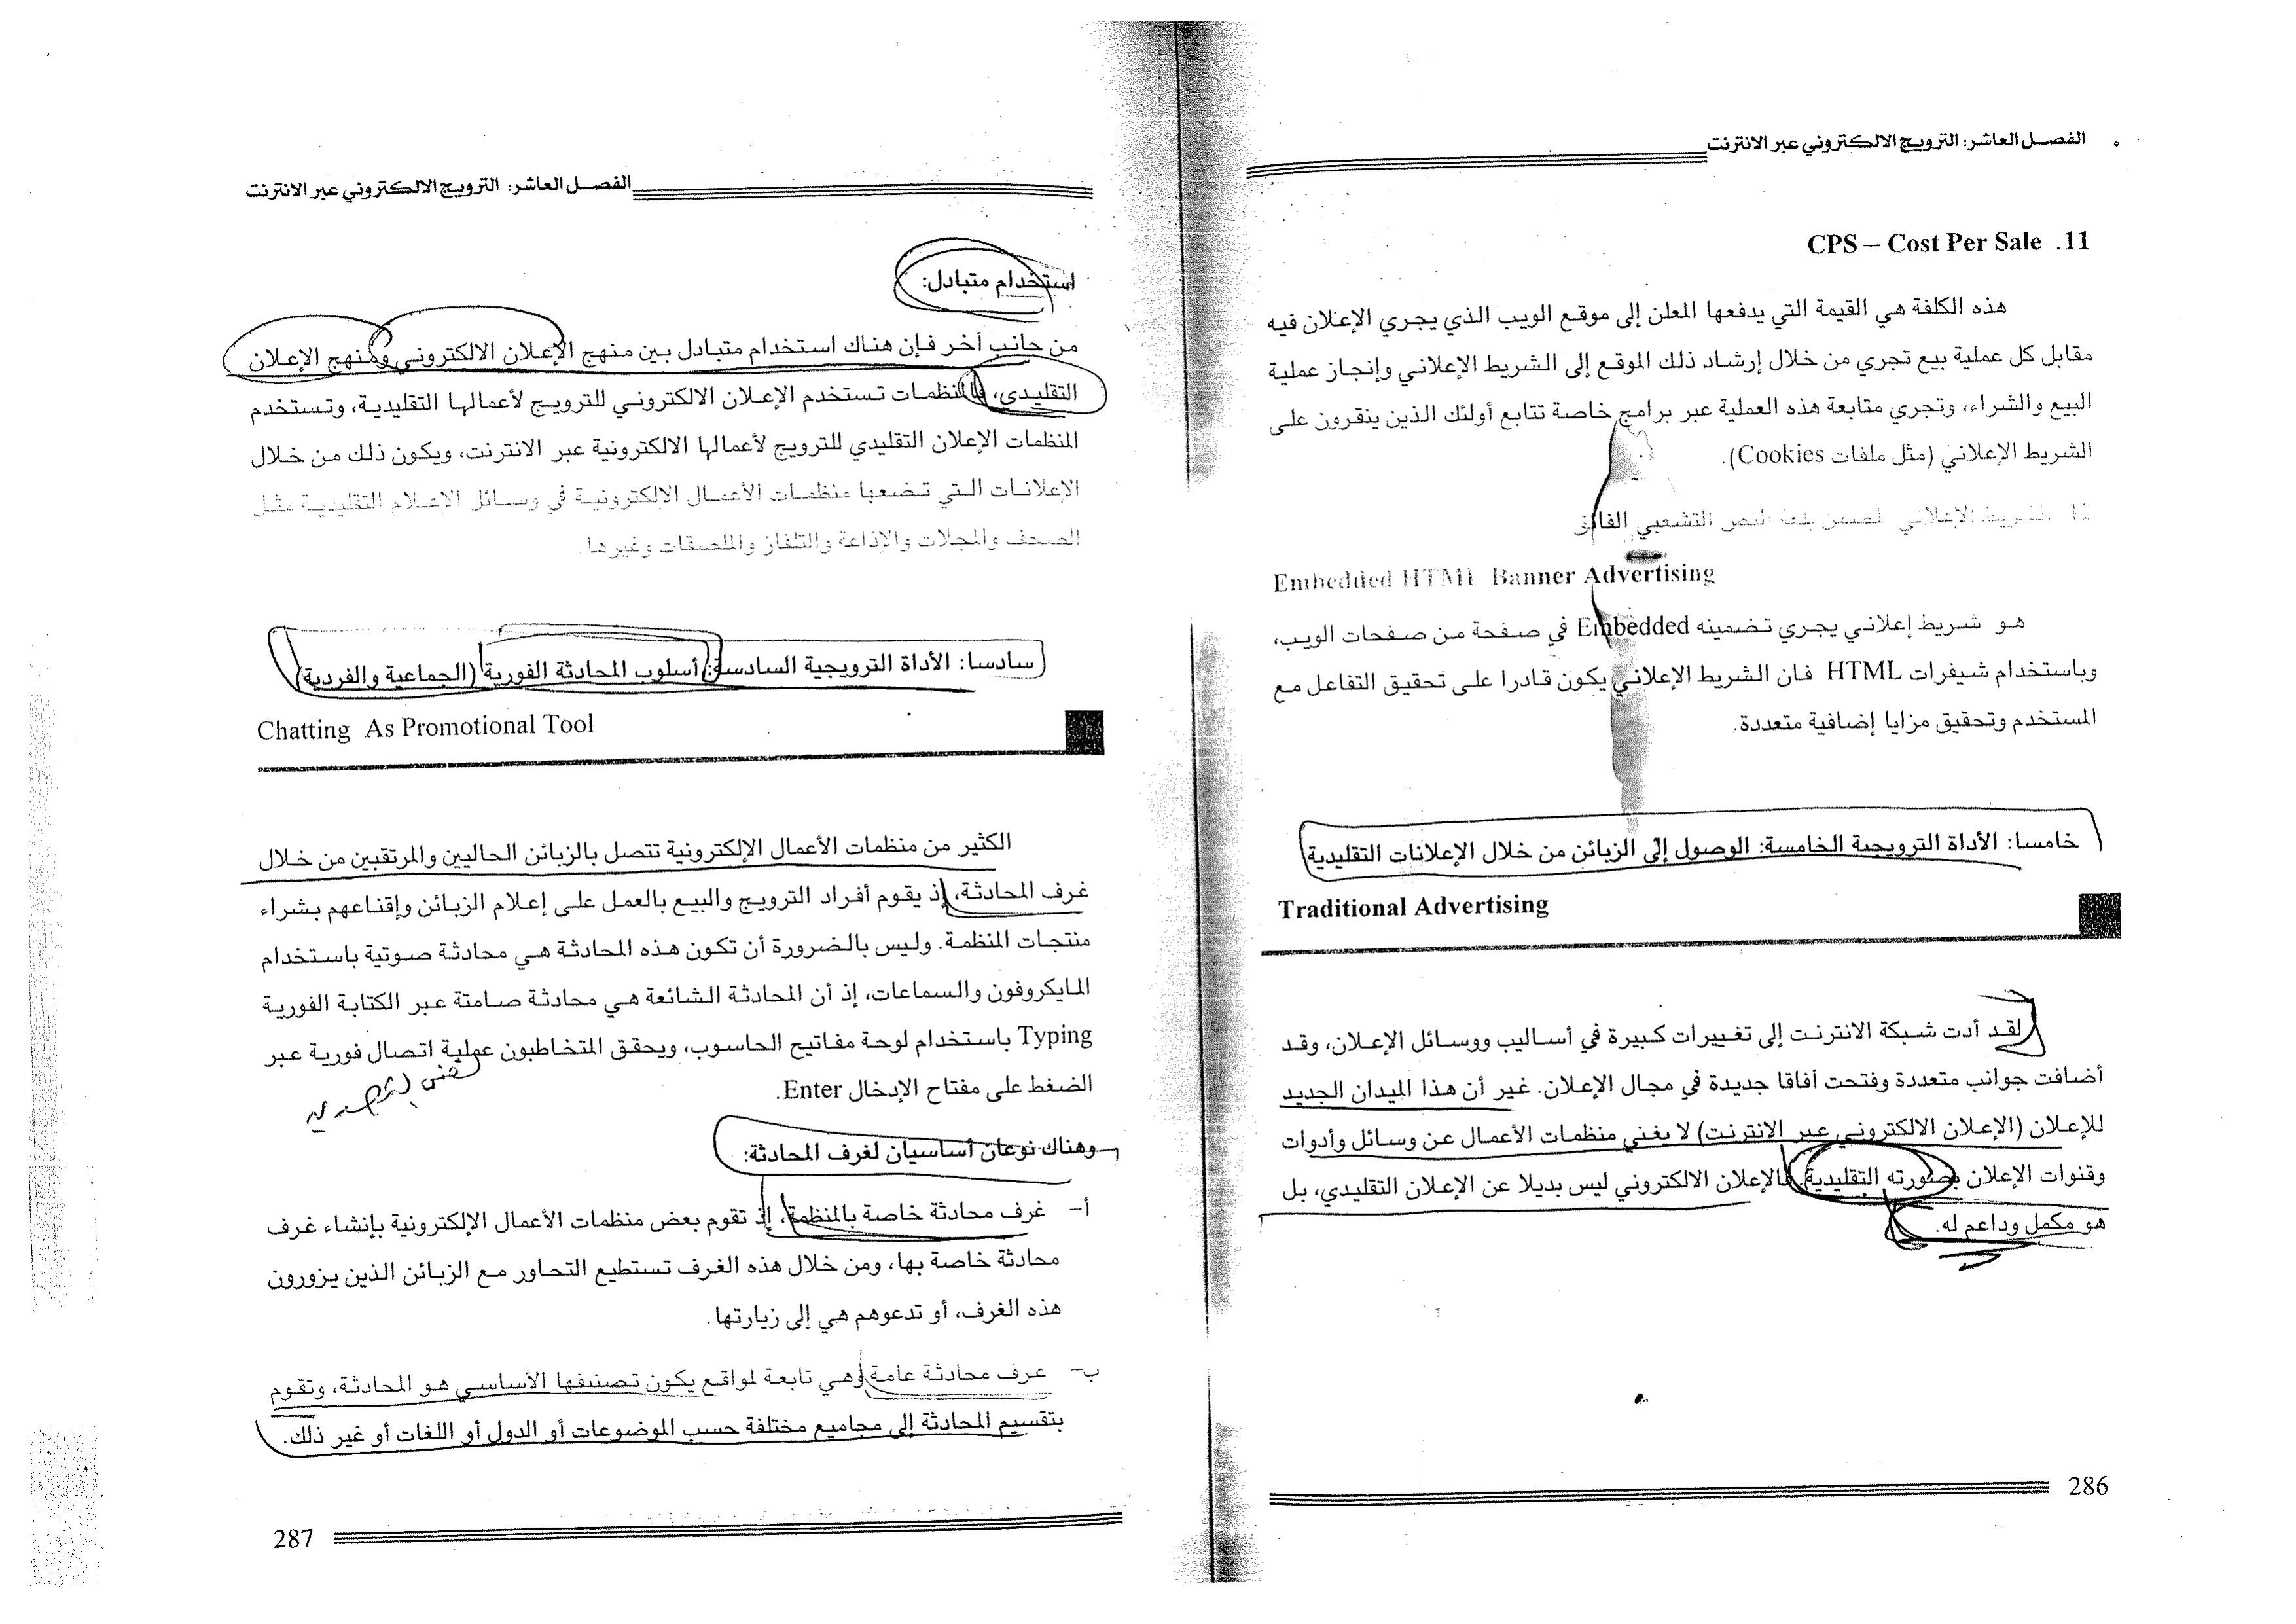 الفصل العاشر: الترويج الالكتروني عبر الانترنت
11. CPS – Cost Per Sale
هذه الكلفة هي القيمة التي يدفعها المعلن إلى موقع الويب الذي يجري الإعلان فيه
مقابل كل عملية بيع تجري من خلال إرشاد ذلك الموقع إلى الشريط الإعلاني وإنجاز عملية
البيع والشراء، وتجري متابعة هذه العملية عبر برامج خاصة تتابع أولئك الذين ينقرون على
الشريط الإعلاني (مثل ملفات Cookies).
12. الشريط الإعلاني المضمن بلغة النص التشعبي الفائق
Embedded HTML Banner Advertising
هو شريط إعلاني يجري تضمينه Embedded في صفحة من صفحات الويب،
وباستخدام شيفرات HTML فان الشريط الإعلاني يكون قادرا على تحقيق التفاعل مع
المستخدم وتحقيق مزايا إضافية متعددة.
خامسا: الأداة الترويجية الخامسة: الوصول إلى الزبائن من خلال الإعلانات التقليدية
Traditional Advertising
لقد أدت شبكة الانترنت إلى تغييرات كبيرة في أساليب ووسائل الإعلان، وقد
أضافت جوانب متعددة وفتحت أفاقا جديدة في مجال الإعلان. غير أن هذا الميدان الجديد
للإعلان (الإعلان الالكتروني عبر الانترنت) لا يغني منظمات الأعمال عن وسائل وأدوات
وقنوات الإعلان بصورته التقليدية. فالإعلان الالكتروني ليس بديلا عن الإعلان التقليدي، بل
هو مكمل وداعم له.
286
الفصل العاشر: الترويج الالكتروني عبر الانترنت
استخدام متبادل:
من جانب أخر فإن هناك استخدام متبادل بين منهج الإعلان الالكتروني ومنهج الإعلان
التقليدي، فالمنظمات تستخدم الإعلان الالكتروني للترويج لأعمالها التقليدية، وتستخدم
المنظمات الإعلان التقليدي للترويج لأعمالها الالكترونية عبر الانترنت، ويكون ذلك من خلال
الإعلانات التي تضعها منظمات الأعمال الالكترونية في وسائل الإعلام التقليدية مثل
الصحف والمجلات والإذاعة والتلفاز والملصقات وغيرها.
سادسا: الأداة الترويجية السادسة: أسلوب المحادثة الفورية (الجماعية والفردية)
Chatting As Promotional Tool
الكثير من منظمات الأعمال الإلكترونية تتصل بالزبائن الحاليين والمرتقبين من خلال
غرف المحادثة، إذ يقوم أفراد الترويج والبيع بالعمل على إعلام الزبائن وإقناعهم بشراء
منتجات المنظمة. وليس بالضرورة أن تكون هذه المحادثة هي محادثة صوتية باستخدام
المايكروفون والسماعات، إذ أن المحادثة الشائعة هي محادثة صامتة عبر الكتابة الفورية
Typing باستخدام لوحة مفاتيح الحاسوب، ويحقق المتخاطبون عملية اتصال فورية عبر
الضغط على مفتاح الإدخال Enter.
وهناك نوعان أساسيان لغرف المحادثة:
أ- غرف محادثة خاصة بالمنظمة، إذ تقوم بعض منظمات الأعمال الإلكترونية بإنشاء غرف
محادثة خاصة بها، ومن خلال هذه الغرف تستطيع التحاور مع الزبائن الذين يزورون
هذه الغرف، أو تدعوهم هي إلى زيارتها.
ب- غرف محادثة عامة وهي تابعة لمواقع يكون تصنيفها الأساسي هو المحادثة، وتقوم
بتقسيم المحادثة إلى مجاميع مختلفة حسب الموضوعات أو الدول أو اللغات أو غير ذلك.
287